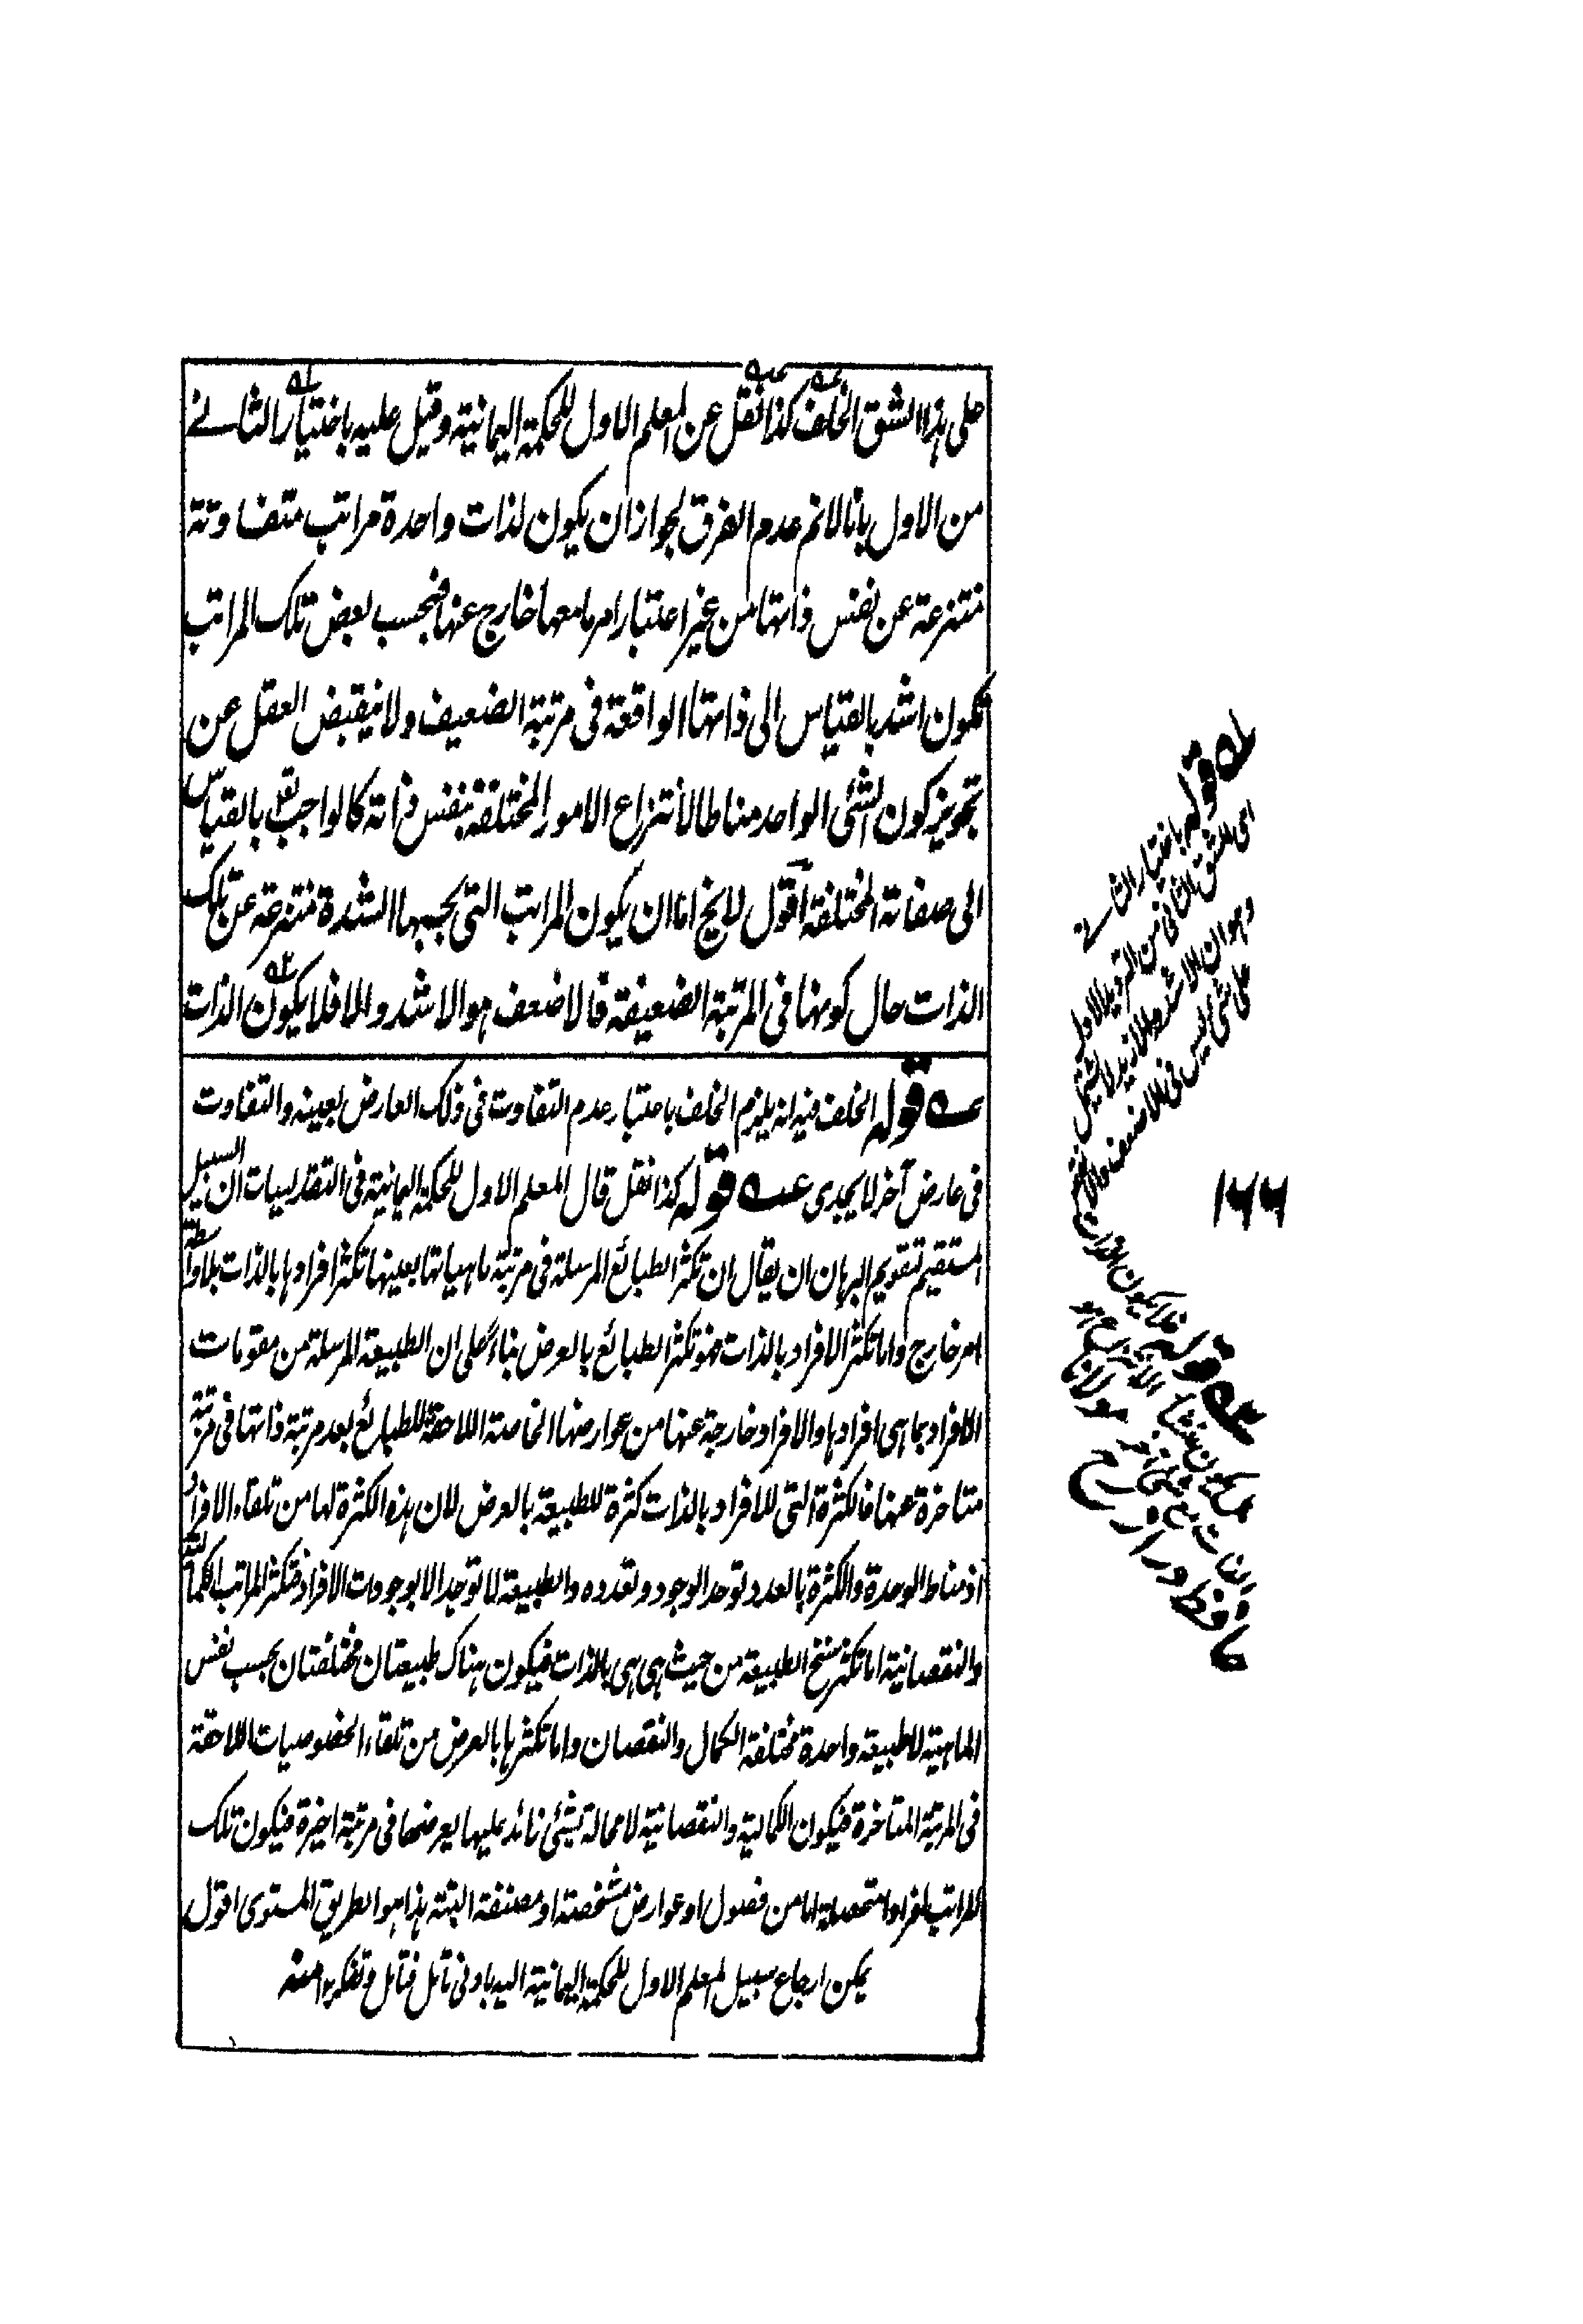 على هذا الشق الخلف كذا نقل عن المعلم الاول للحكمة اليمانية وقيل عليه باختيار الثانے
من الاول بانا لا نم عدم الفرق لجواز ان يكون لذات واحدة مراتب متفاوتة
منتزعة عن نفس ذاتها من غير اعتبار امر ما معها خارج عنها فبحسب بعض تلك المراتب
تكون اشد بالقياس الى ذاتها الواقعة فى مرتبة الضعيف ولا ينقبض العقل عن
تجويز كون الشئ الواحد مناطا لانتزاع الامور المختلفة بنفس ذاته كالواجب تعا بالقياس
الى صفاته المختلفة اقول لا يخ اما ان يكون المراتب التى بحسبها الشدة منتزعة عن تلك
الذات حال كونها فى المرتبة الضعيفة فالاضعف هو الاشد والا فلا يكون الذات
قوله الخلف فيه انه يلزم الخلف باعتبار عدم التفاوت فى ذلك العارض بعينه والتفاوت
فى عارض آخر لا يجدى قوله كذا نقل قال المعلم الاول للحكمة اليمانية فى التقديسات ان السبيل
المستقيم لتقويم البرهان ان يقال ان تكثر الطبائع المرسلة فى مرتبة ماهياتها بعينها تكثر افرادها بالذات بلا واسطة
امر خارج واما تكثر الافراد بالذات فهو تكثر الطبائع بالعرض بناء على ان الطبيعة المرسلة من مقومات
الافراد بما هى افرادها والافراد خارجة عنها من عوارضها الخاصة اللاحقة للطبائع بعد مرتبة ذاتها فى مرتبة
متاخرة عنها فالكثرة التى للافراد بالذات كثرة للطبيعة بالعرض لان هذه الكثرة لها من تلقاء الافراد
اذ مناط الوحدة والكثرة بالعدد توحد الوجود وتعدده والطبيعة لا توجد الا بوجودات الافراد فتكثر المراتب الكمالية
والنقصانية اما تكثر سنخ الطبيعة من حيث هى هى بالذات فيكون هناك طبيعتان مختلفتان بحسب نفس
الماهية لا طبيعة واحدة مختلفة الكمال والنقصان واما تكثرها بالعرض من تلقاء الخصوصيات اللاحقة
فى المرتبة المتاخرة فيكون الكمالية والنقصانية لا محالة بشئ زائد عليها يعرضها فى مرتبة اخيرة فيكون تلك
المراتب افرادا متحصلة اما من فصول او عوارض مشخصة او مصنفة البتة هذا هو الطريق المستوى اقول
يمكن ارجاع سبيل المعلم الاول للحكمة اليمانية اليه بادنى تامل فتامل وتفكر ١٢ منه
قوله باختيار الثانے
اى الشق الثانى من الترديد الاول
وهو ان الاشد والازيد لا يشتمل
على شئ ليس فى الاضعف والانقص
قوله فلا يكون الذات
١٦٦